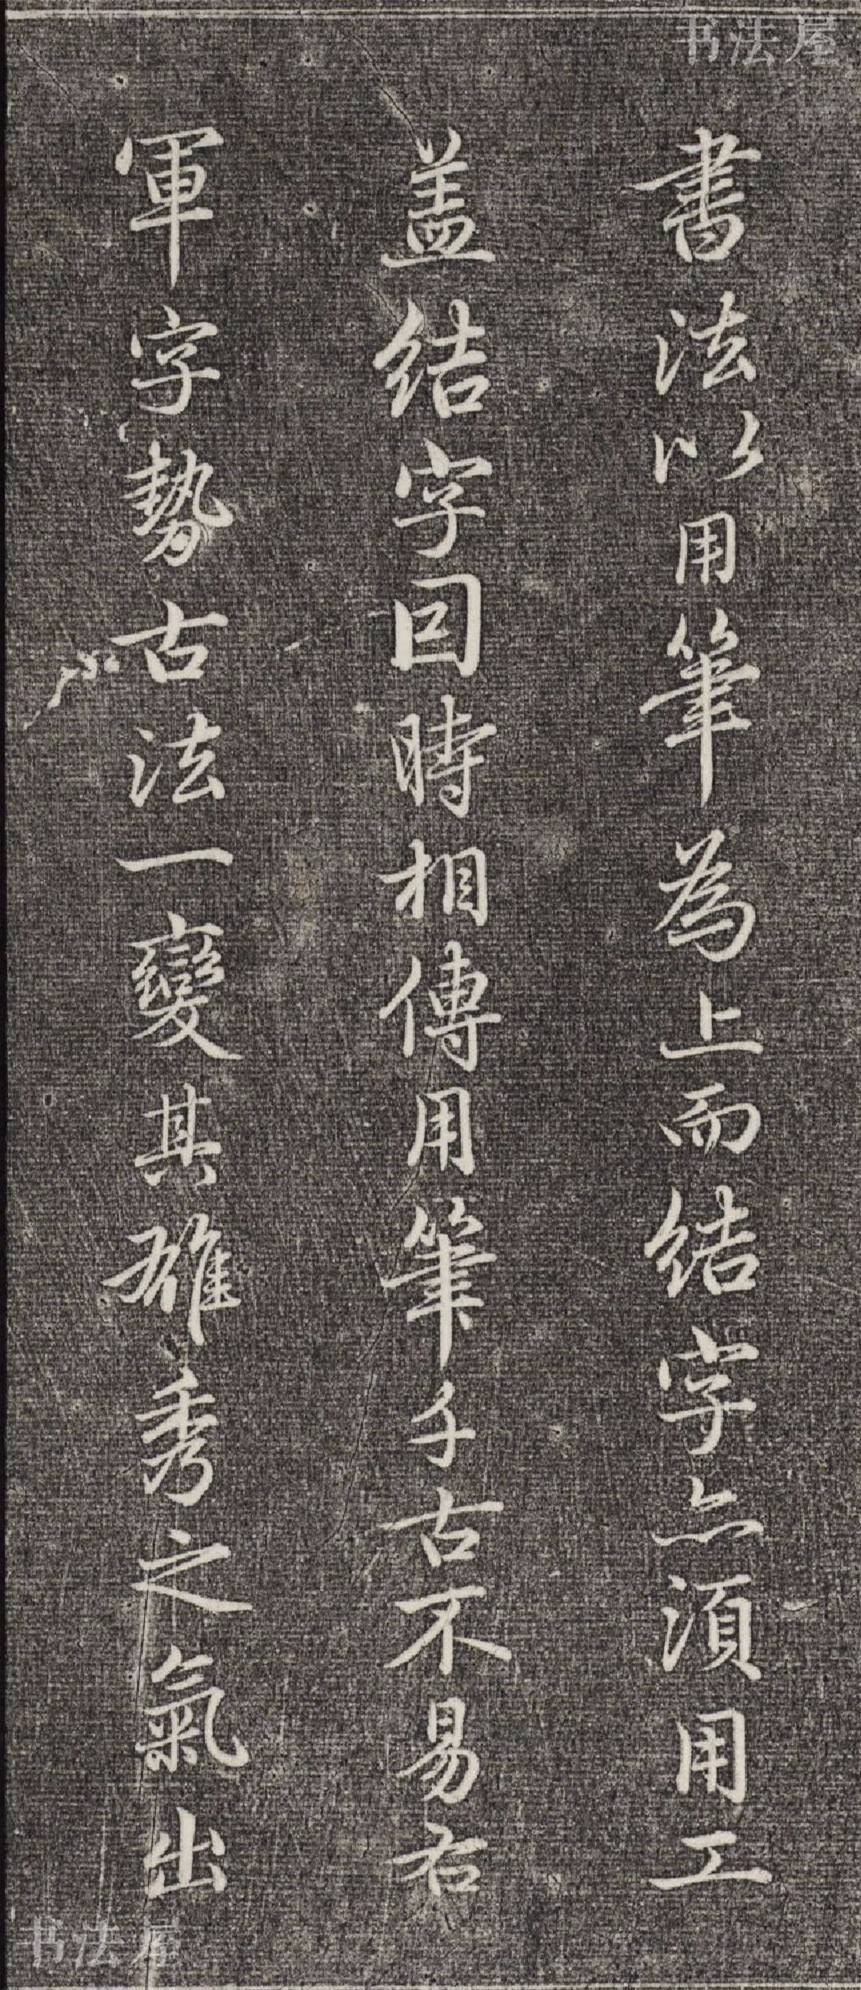 书法屋
書法以用筆為上而结字亦須用工
盖结字因時相傳用筆千古不易右
軍字勢古法一變其雄秀之氣出
书法屋